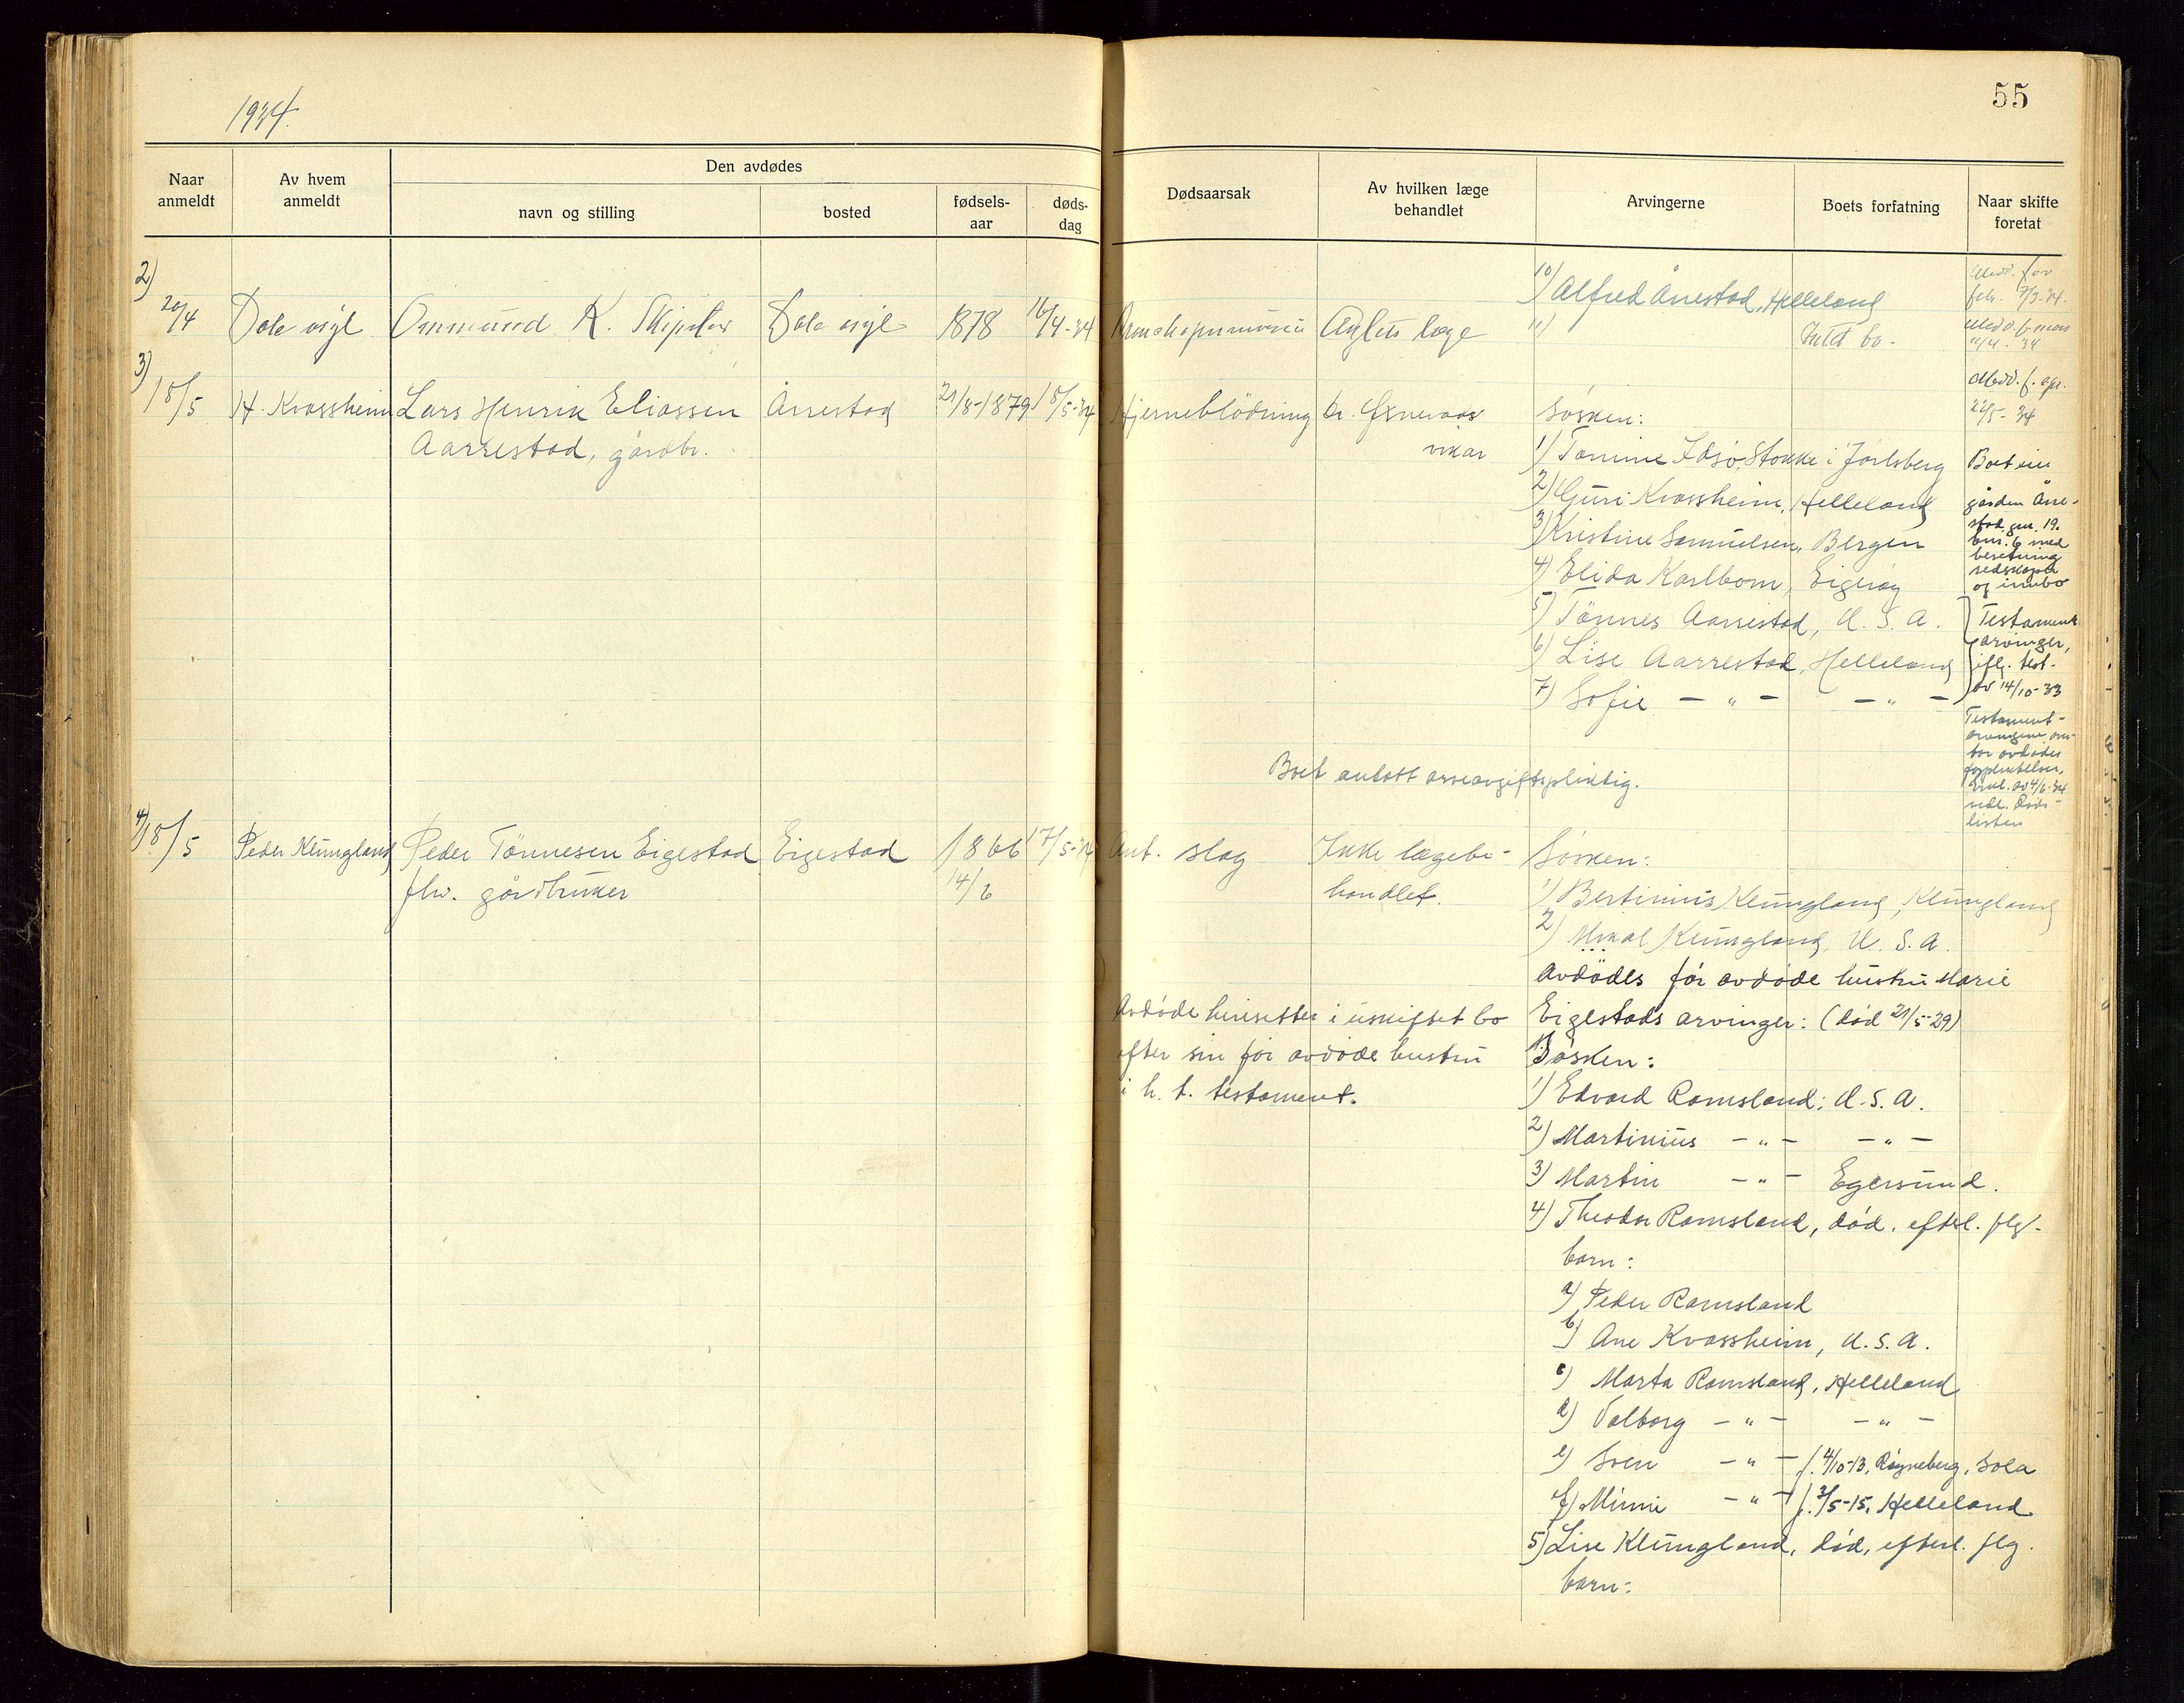 1934.
55
Naar anmeldt
Av hvem anmeldt
Den avdødes
navn og stilling
bosted
fødsels-aar
døds-dag
Dødsaarsak
Av hvilken læge behandlet
Arvingerne
Boets forfatning
Naar skifte foretat
10) Alfred Årrestad, Helleland
Medd. for
febr. 7/3-34.
2)
20/4 Dale asyl Ommund K. Dale asyl 1878 16/4-34 Asylets læge 11) Intet bo.
Medd. f. mars
11/4-34
3)
18/5 H. Kvassheim Lars Henrik Eliassen Årrestad 21/8-1879 18/5-34 Hjerneblödning dr. vikar
Aarrestad, gårdbr.
Medd. f. apr.
22/5-34
Søsken:
1) Tomine Idsø, Stokke i Jarlsberg
2) Guri Kvassheim, Helleland
3) Kristine Samuelsen, Bergen
4) Elida Karlbom, Eigerøy
5) Tönnes Aarrestad, U.S.A.
6) Lise Aarrestad, Helleland
7) Sofie — " — — " —
Boet eier
gården Årre-
stad gnr. 19.
bnr. 6 med
besetning
redskaper
og innbo
Testament
arvinger,
iflg. test.
av 14/10-33
Testament-
arvingene over-
tar avdødes
forpliktelser,
Erkl. av 4/6-34
vedl. Døds-
listen
Boet antatt arveavgiftspliktig.
4)
18/5 Peder Klungland Peder Tönnesen Eigestad Eigestad 1866 17/5-34 Ant. slag Ikke lægebe-
fhv. gårdbruker 14/2 handlet.
Søsken:
1) Bertinius Klungland, Klungland
2) Mikal Klungland, U.S.A.
Avdödes før avdøde hustru Marie
Eigestads arvinger: (død 21/5-29)
Avdøde hensetter i uskiftet bo
efter sin før avdøde hustru
i h. t. testament.
Søsken:
1) Edvard Ramsland: U.S.A.
2) Martinius — " — — " —
3) Martin — " — Egersund.
4) Theodor Ramsland, død. efterl. flg.
barn:
a) Peder Ramsland
b) Ane Kvassheim, U.S.A.
c) Marta Ramsland, Helleland
d) Valborg — " — — " —
e) Sven — " — f. 4/10-13, Røyneberg, Sola
f) Minni — " — f. 3/5-15, Helleland
5) Lise Klungland, død, efterl. flg.
barn: